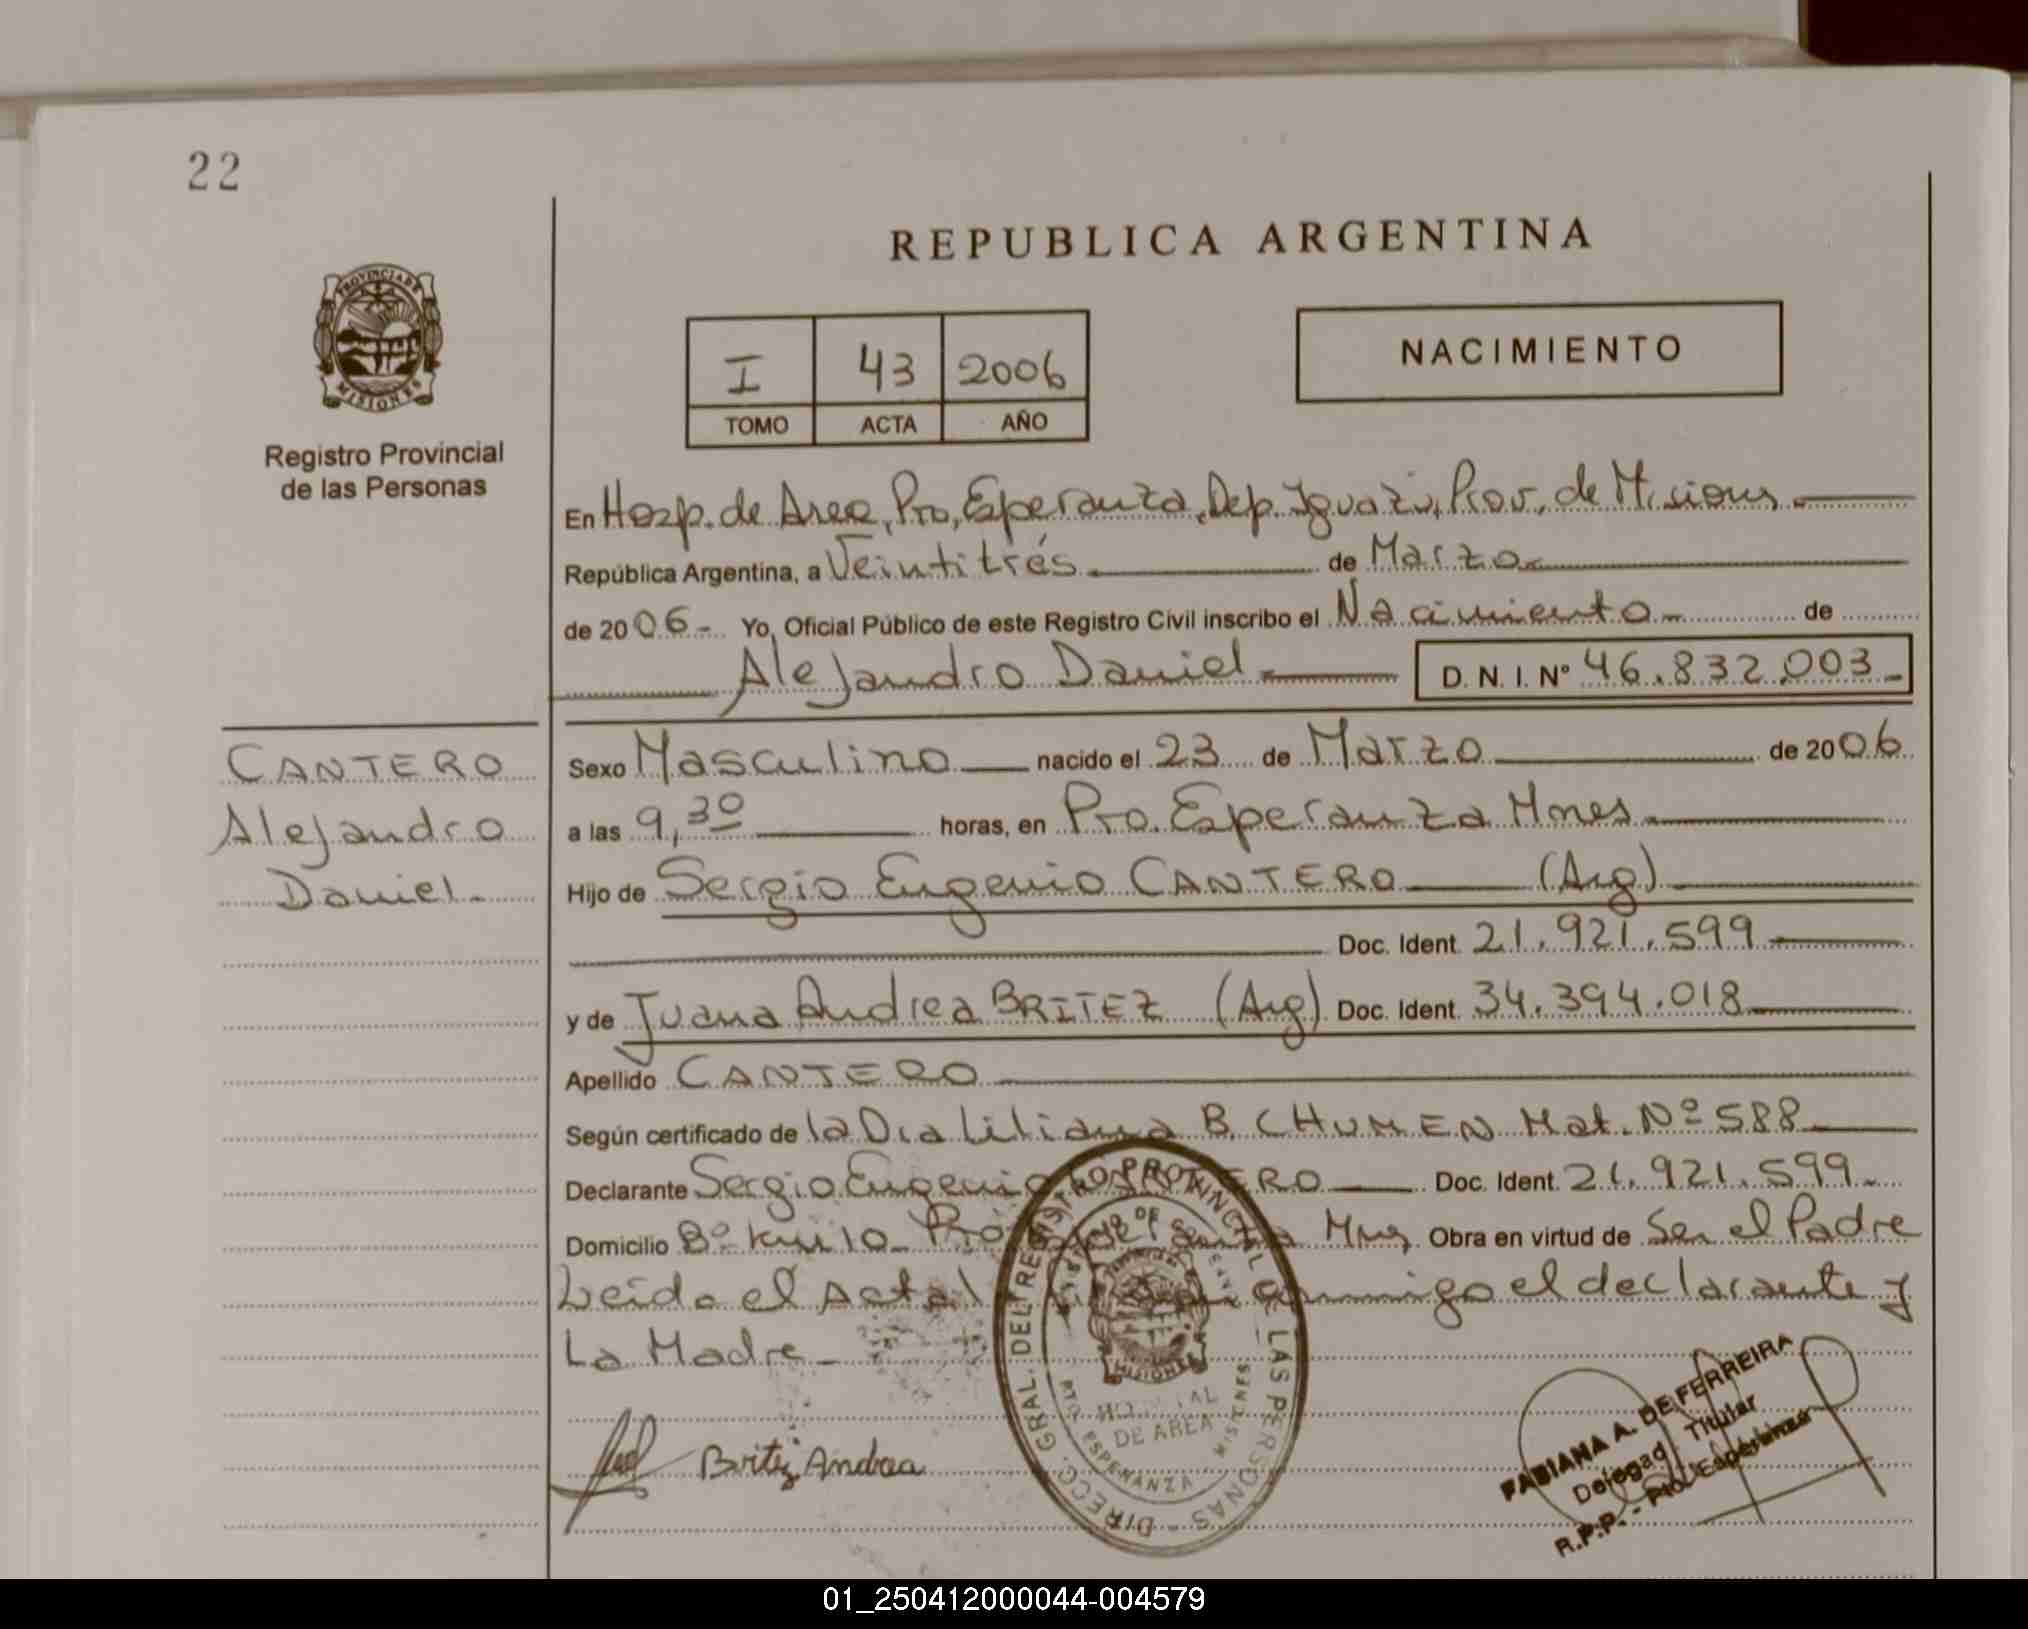 22
REPUBLICA ARGENTINA
PROVINCIA DE
MISIONES
Registro Provincial
de las Personas
I 43 2006
TOMO ACTA AÑO
NACIMIENTO
En Hosp. de Area, Pto, Esperanza, Dep. Iguazú, Prov. de Misiones
República Argentina, a Veintitrés de Marzo
de 2006- Yo, Oficial Público de este Registro Civil inscribo el Nacimiento de
Alejandro Daniel D. N. I. Nº 46.832.003
CANTERO
Alejandro
Daniel
Sexo Masculino nacido el 23 de Marzo de 2006
a las 9,30 horas, en Pto. Esperanza Mnes
Hijo de Sergio Eugenio CANTERO (Arg)
Doc. Ident. 21.921.599
y de Juana Andrea BRITEZ (Arg) Doc. Ident. 34.394.018
Apellido CANTERO
Según certificado de la Dra Liliana B. CHUMEN Mat. Nº 588
Declarante Sergio Eugenio CANTERO Doc. Ident. 21.921.599
Domicilio Bº Km 10 Mnes Obra en virtud de Ser el Padre
Leída el Acta conmigo el declarante y
La Madre
Britez Andrea
DIRECC. GRAL. DEL REGISTRO PROVINCIAL DE LAS PERSONAS
MISIONES
DE AREA
PTO ESPERANZA MISIONES
FABIANA A. DE FERREIRA
Titular
R.P.P. - Pto. Esperanza
01_250412000044-004579